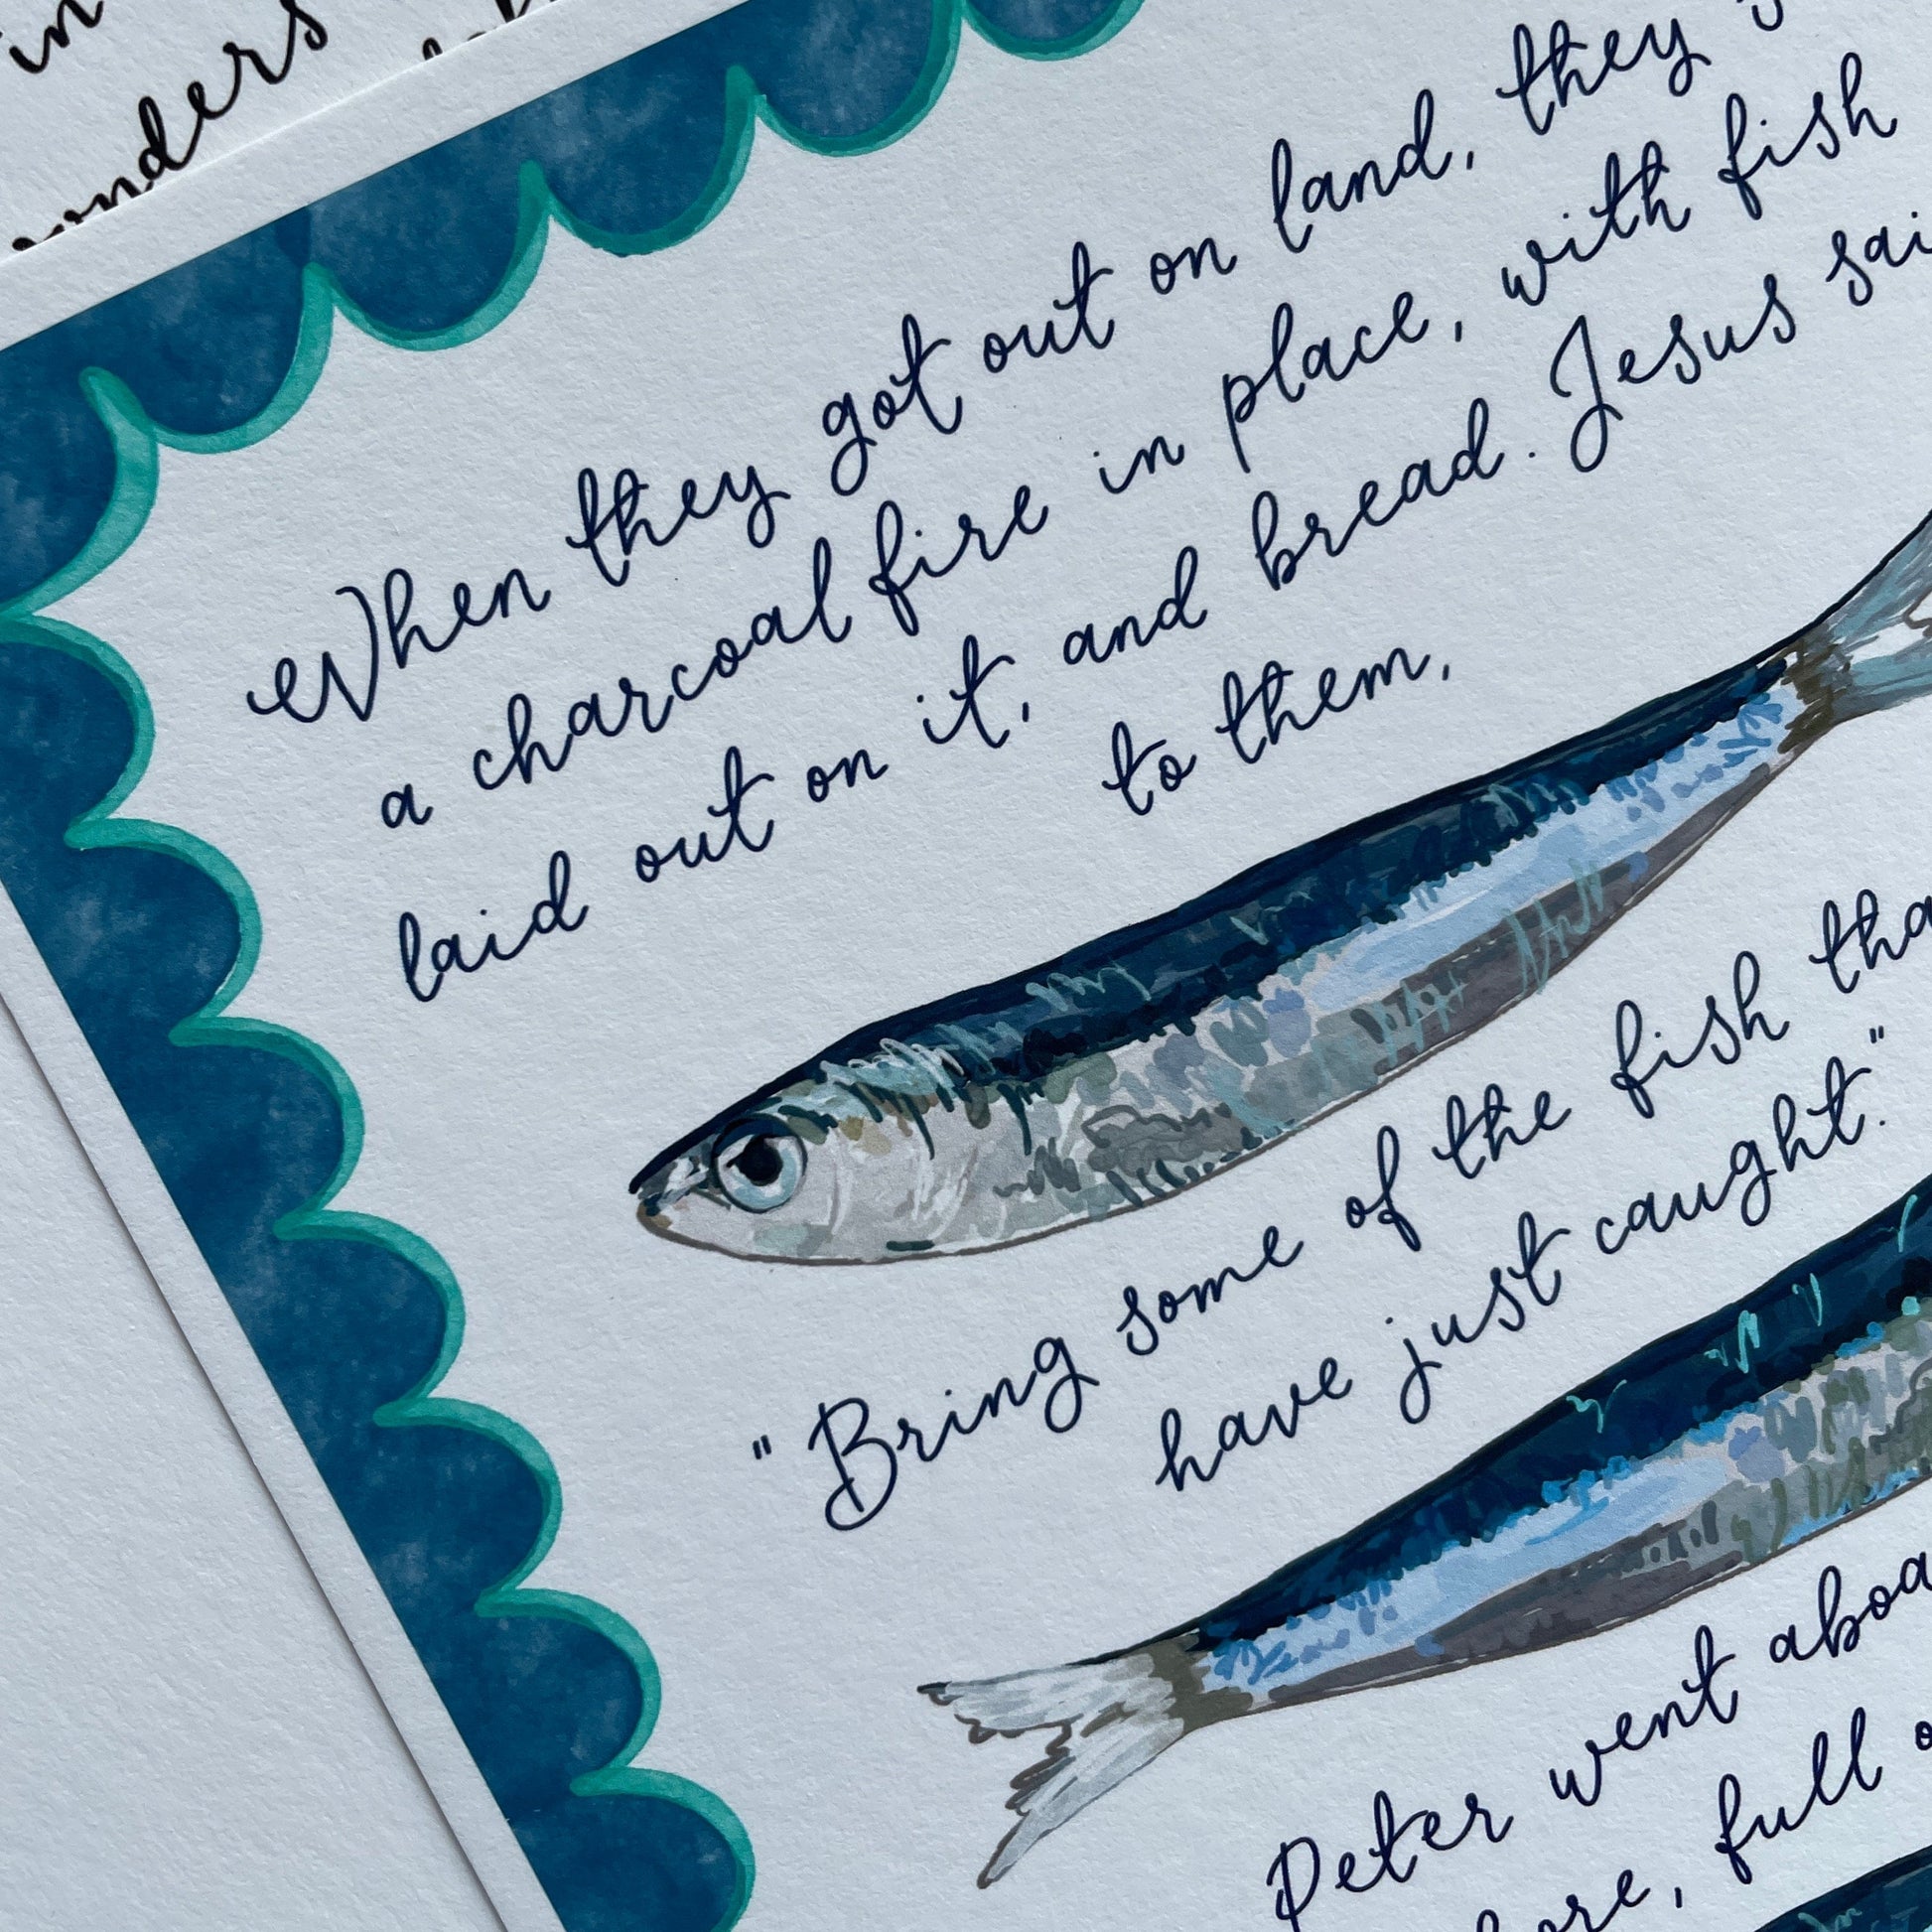 in
When they got out on land, they
a charcoal fire in place, with fish
laid out on it, and bread. Jesus
to them,
"Bring some of the fish
have just caught."
Peter went
full